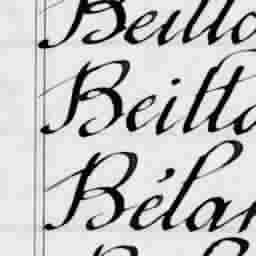 Beillo
Beilta
Bélar